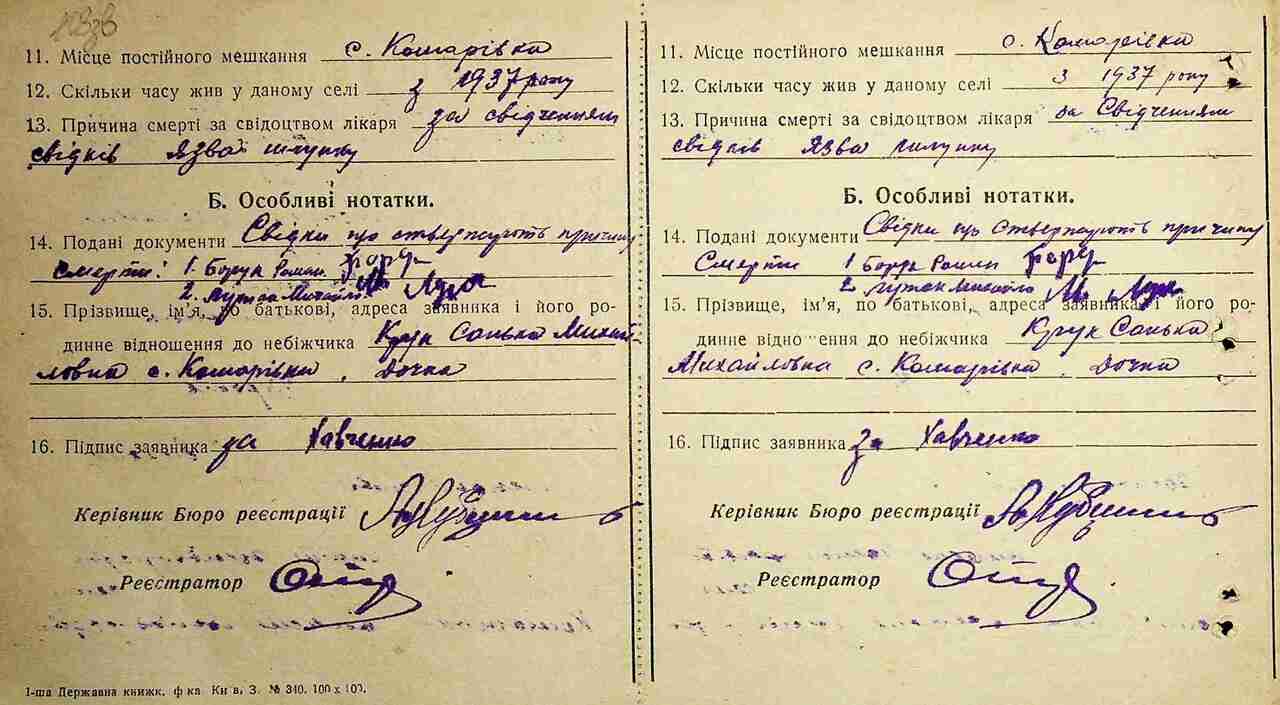 11. Місце постійного мешкання с. Комарівка
12. Скільки часу жив у даному селі з 1937 року
13. Причина смерті за свідоцтвом лікаря за свідченням
свідків Язва шлунку
Б. Особливі нотатки.
14. Подані документи Свідки що стверджують причину
смерти: 1. Борук Роман
2. Михайло
15. Прізвище, ім'я, по батькові, адреса заявника і його ро-
динне відношення до небіжчика Крук Санька Михай-
ловна с. Комарівка, дочка
16. Підпис заявника за Харченко
Керівник Бюро реєстрації
Реєстратор
1-ша Державна книжк. ф-ка Київ, З. № 340. 100 х 100.
11. Місце постійного мешкання с. Комарівка
12. Скільки часу жив у даному селі з 1937 року
13. Причина смерті за свідоцтвом лікаря за Свідченням
свідків Язва шлунку
Б. Особливі нотатки.
14. Подані документи Свідки що стверджують причину
Смерти 1 Борук Роман
2 Михайло
15. Прізвище, ім'я, по батькові, адреса заявника і його ро-
динне відношення до небіжчика Крук Санька
Михайловна с. Комарівка, дочка
16. Підпис заявника За Харченко
Керівник Бюро реєстрації
Реєстратор